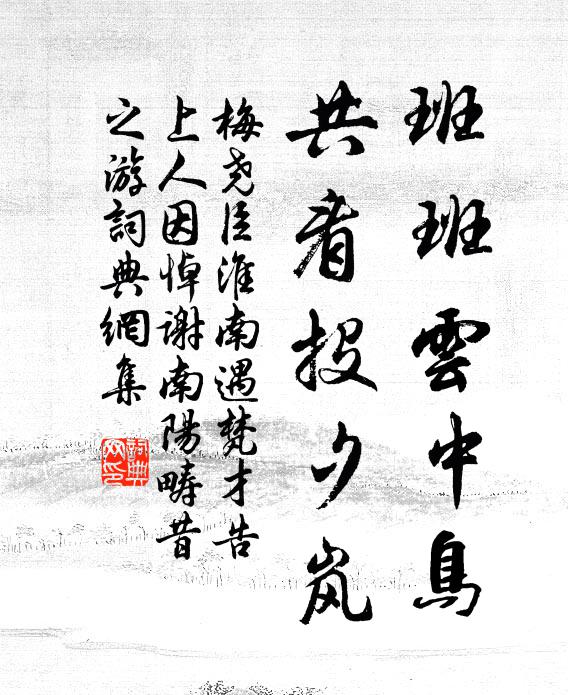 班班雲中鳥
共看投夕岚
梅尧臣淮南遇梵才吉
上人因悼谢南陽畴昔
之游詞典網集
詞典
网印